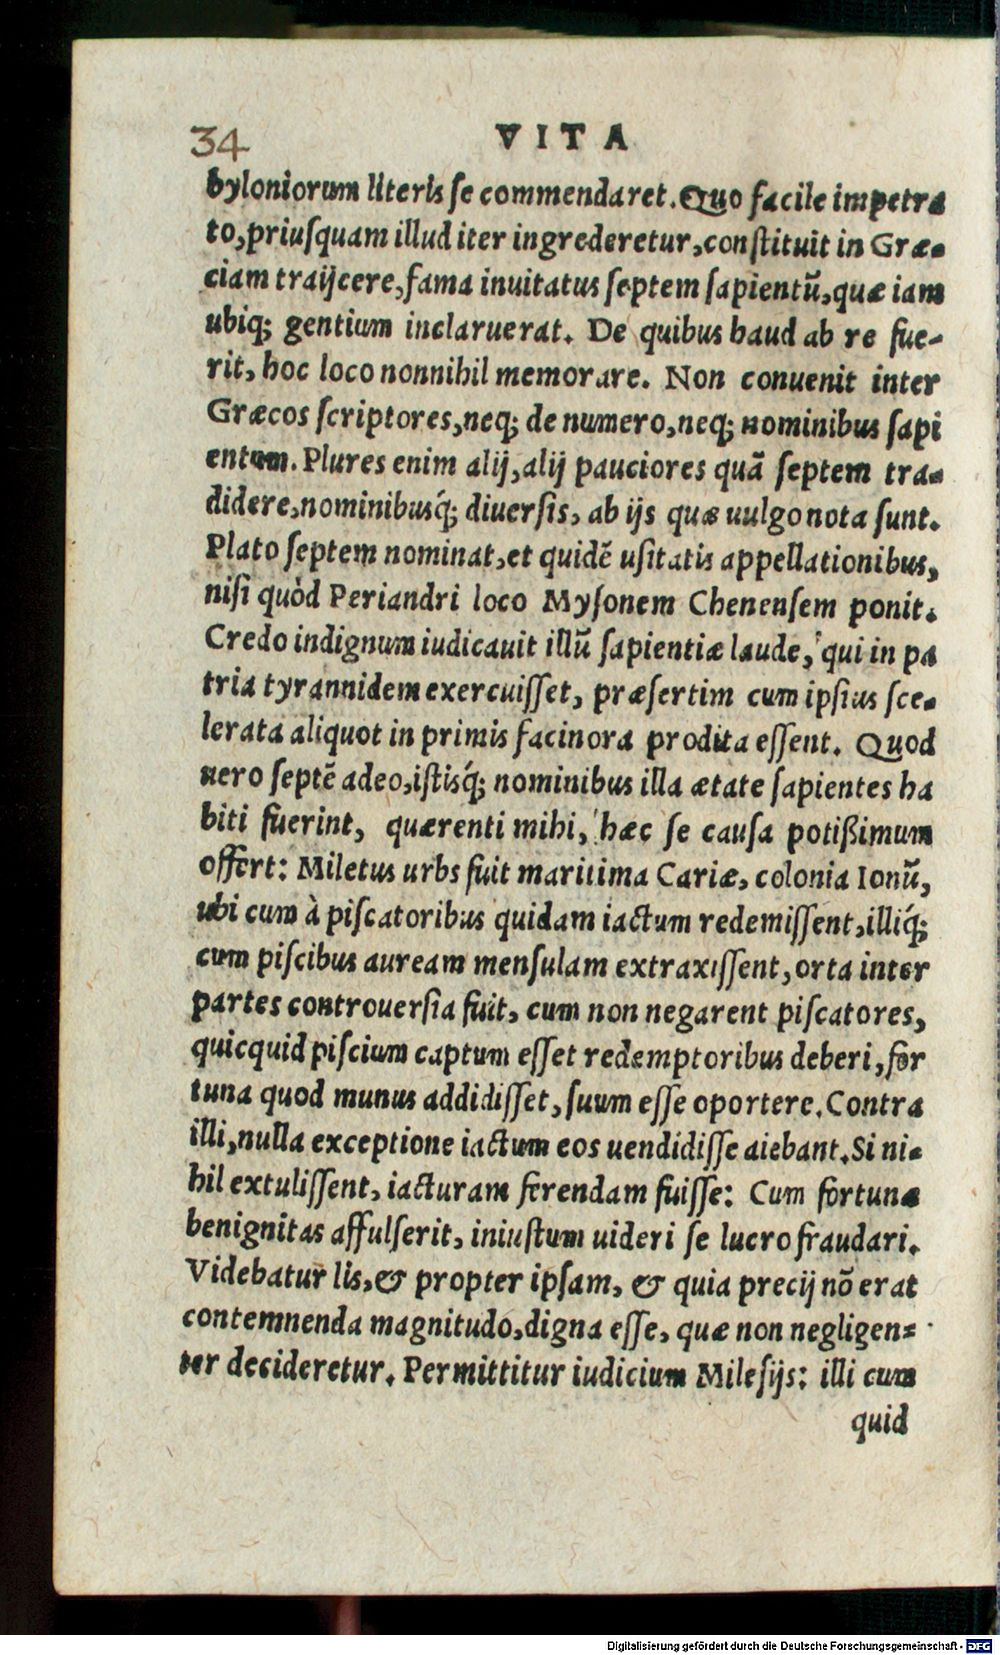 34
VITA
byloniorum literis ſe commendaret. Quo facile impetra
to, priuſquam illud iter ingrederetur, conſtituit in Græ-
ciam traijcere, fama inuitatus ſeptem ſapientũ, quæ iam
ubiq; gentium inclaruerat. De quibus haud ab re fue-
rit, hoc loco nonnihil memorare. Non conuenit inter
Græcos ſcriptores, neq; de numero, neq; nominibus ſapi
entum. Plures enim alij, alij pauciores quã ſeptem tra-
didere, nominibusq́; diuerſis, ab ijs quæ uulgo nota ſunt.
Plato ſeptem nominat, et quidẽ uſitatis appellationibus,
niſi quòd Periandri loco Myſonem Chenenſem ponit.
Credo indignum iudicauit illũ ſapientiæ laude, qui in pa
tria tyrannidem exercuiſſet, præſertim cum ipſius ſce-
lerata aliquot in primis facinora prodita eſſent. Quod
uero ſeptẽ adeo, iſtisq́; nominibus illa ætate ſapientes ha
biti fuerint, quærenti mihi, hæc ſe cauſa potißimum
offert: Miletus urbs fuit maritima Cariæ, colonia Ionũ,
ubi cum à piſcatoribus quidam iactum redemiſſent, illiq́;
cum piſcibus auream menſulam extraxiſſent, orta inter
partes controuerſia fuit, cum non negarent piſcatores,
quicquid piſcium captum eſſet redemptoribus deberi, for
tuna quod munus addidiſſet, ſuum eſſe oportere. Contra
illi, nulla exceptione iactum eos uendidiſſe aiebant. Si ni-
hil extuliſſent, iacturam ferendam fuiſſe: Cum fortunæ
benignitas affulſerit, iniuſtum uideri ſe lucro fraudari.
Videbatur lis, & propter ipſam, & quia precij nõ erat
contemnenda magnitudo, digna eſſe, quæ non negligen=
ter decideretur. Permittitur iudicium Mileſijs: illi cum
quid
Digitalisierung gefördert durch die Deutsche Forschungsgemeinschaft - DFG